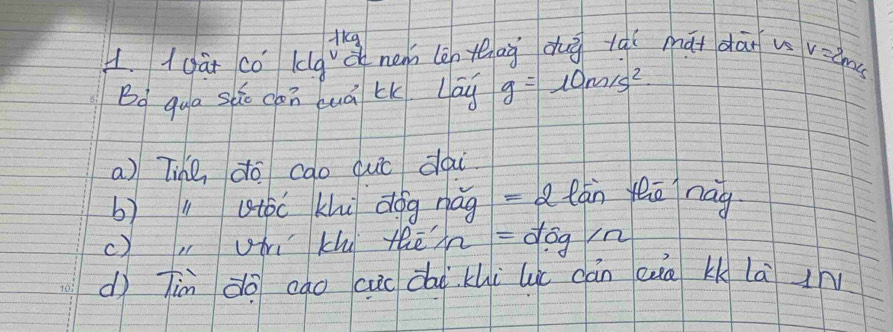 1. 1 vật có klg 1kg đc ném lên thẳng đứg tại mặt đất vs v=2m/s
Bỏ qua sức cản của kk. Lấy g = 10m/s²
a) Tính độ cao cực đại
b) " vtốc khi động năg = 2 lần thế năg
c) " vtrí khi thế n = độg n
d) Tìm độ cao cực đại khi lực cản của kk là 1N